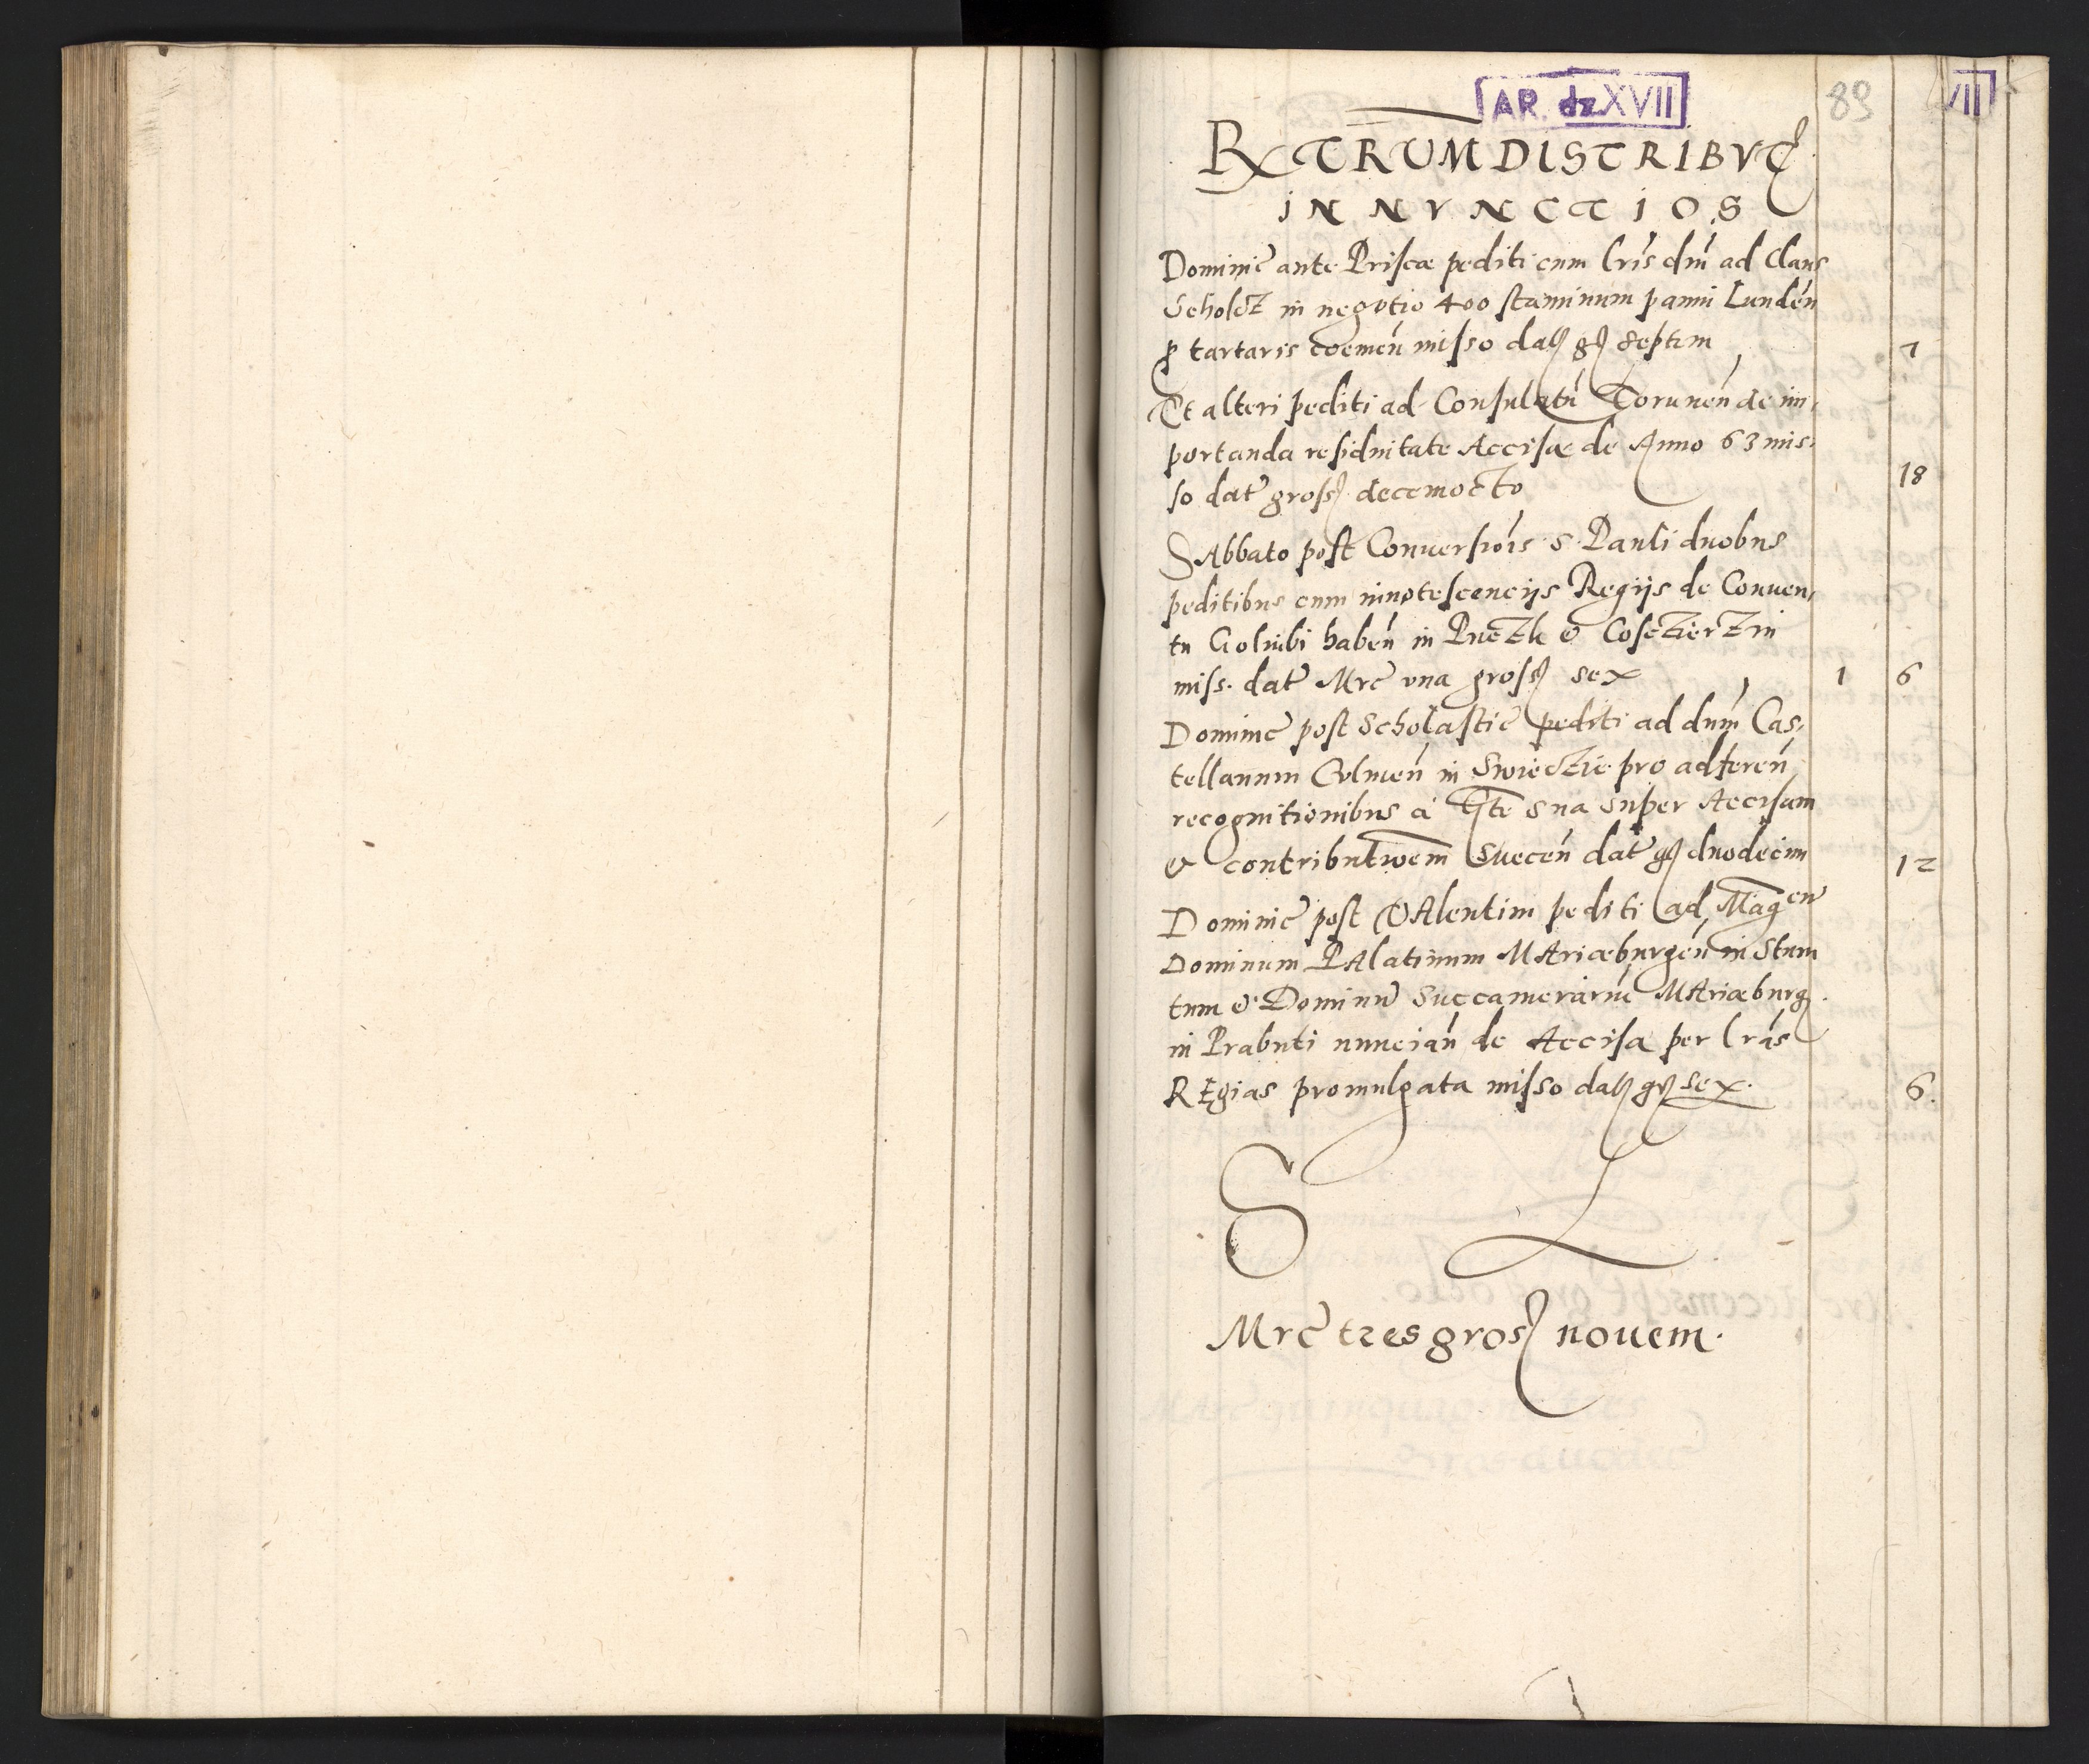 AR. dz XVII
89
VII
Rx TRUM DISTRIBVT
IN NVNCTIOS
Dominic ante Priscæ pediti cum lris dni ad Claus
Scholtz in negotio 400 staminum panni Lunden
p tartaris coemen misso dat gs septem 7
Et alteri pediti ad Consulatu Torunen de im,
portanda residuitate Accisæ de Anno 63 mis,
so dat gross decemocto 18
SAbbato post Conuersiois S Pauli duobus
peditibus cum innotescencijs Regijs de Conuen,
tu Golubi haben in Puczk & Cosczierzin
miss. dat Mrc una gross sex 1 6
Dominic post Scholastic pediti ad dnm Cas,
tellanum Culmen in Swieczie pro adferen
recognitionibus a Gte sua super Accisam
& contributioem Suecen dat gs duodecim 12
Dominic post VAlentini pediti ad Magcu
Dominum PAlatinum MAriæburgen in Stum
tum & Dominu Succamerariu MAriæburg
in Prabuti nuncian de Accisa per lras
REgias promulgata misso dat gs sex. 6.
S L
Mrc tres gros nouem.